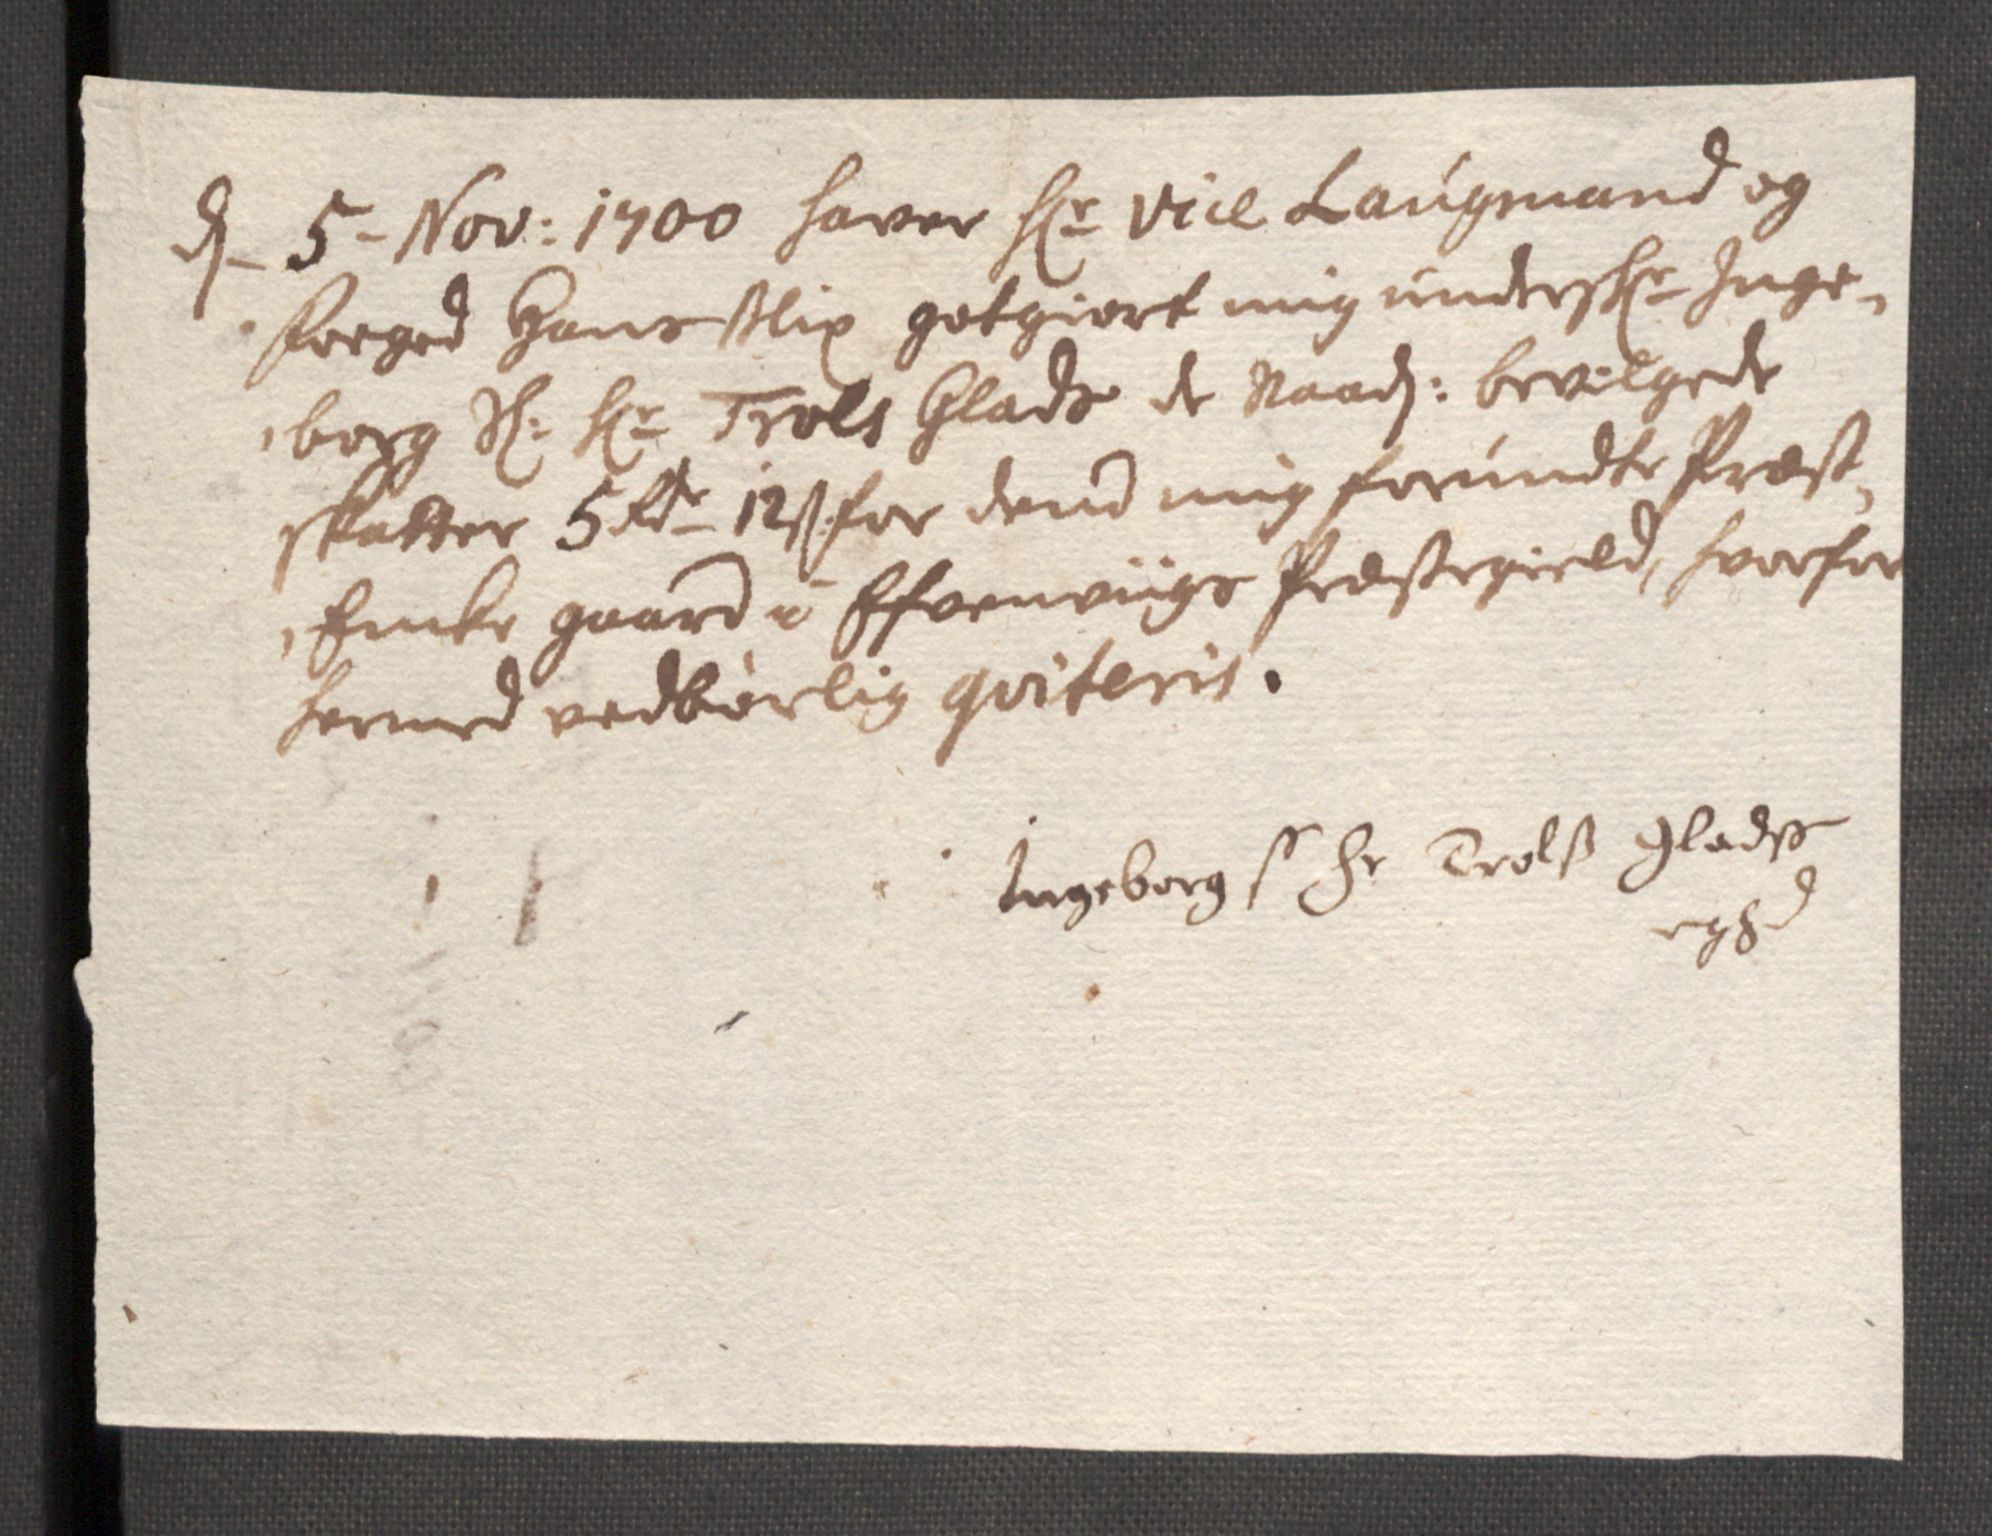 d. 5 - Nov: 1700 haver Hr Vice Laugmand og
Foeged Hans Blix gotgiort mig undersKr Inge-
borg Sl: Hr Trols Glads de Naad: bevilgede
skatter 5 Rdr 12 ß. for dend mig forundte Præst-
Encke gaard i Efvenviigs Præstegield, hvorfor
hermed vedbørlig qviteris.
Ingeborg Sl Hr Trolß Gladß
egHd